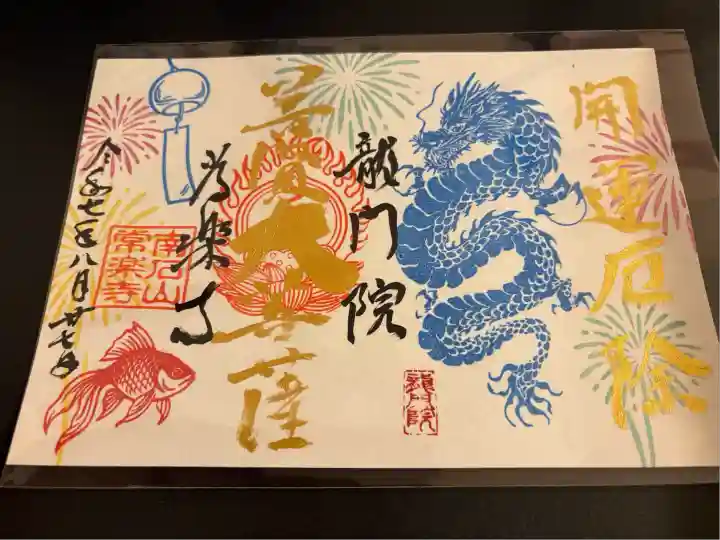 開運厄除
龍門院
普賢大菩薩
常楽寺
南応山
常楽寺
令和七年八月廿七日
龍門院